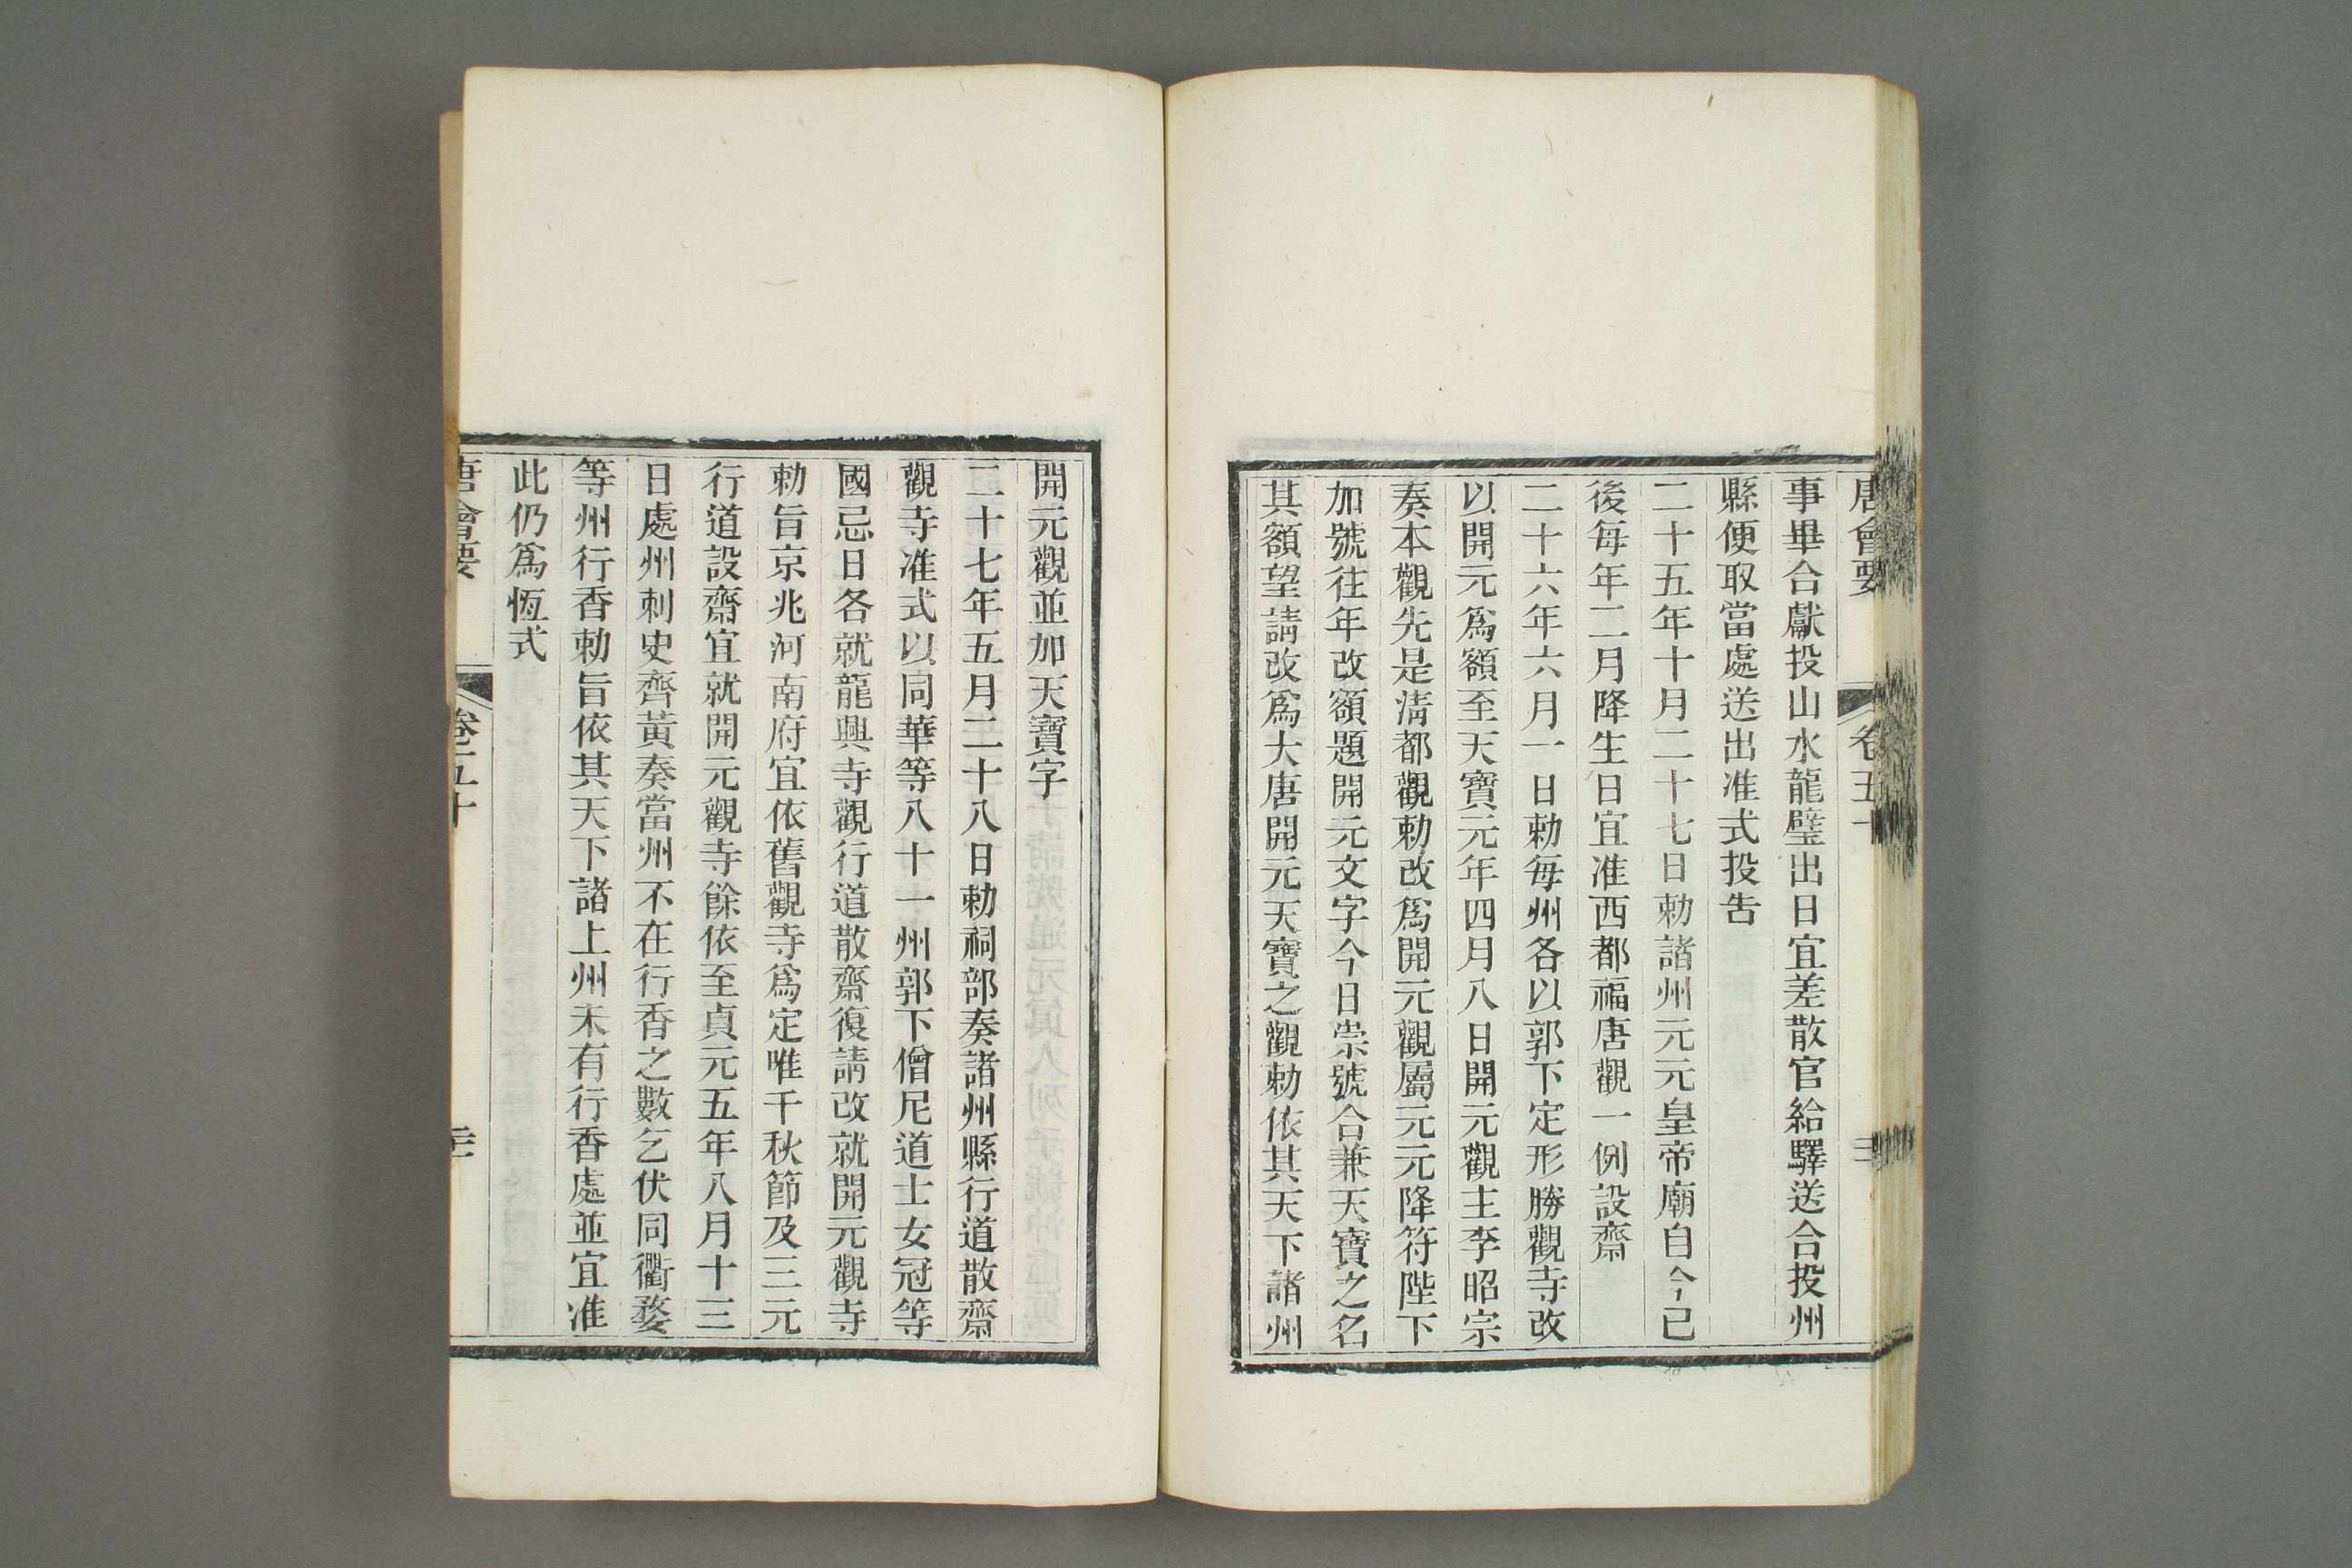 唐會要 卷五十
事畢合獻投山水龍璧出日宜差散官給驛送合投州
縣便取當處送出准式投告
二十五年十月二十七日勅諸州元元皇帝廟自今已
後每年二月降生日宜准西都福唐觀一例設齋
二十六年六月一日勅每州各以郭下定形勝觀寺改
以開元爲額至天寶元年四月八日開元觀主李昭宗
奏本觀先是淸都觀勅改爲開元觀屬元元降符陛下
加號往年改額題開元文字今日崇號合兼天寶之名
其額望請改爲大唐開元天寶之觀勅依其天下諸州
開元觀並加天寶字
二十七年五月二十八日勅祠部奏諸州縣行道散齋
觀寺准式以同華等八十一州郭下僧尼道士女冠等
國忌日各就龍興寺觀行道散齋復請改就開元觀寺
勅旨京兆河南府宜依舊觀寺爲定唯千秋節及三元
行道設齋宜就開元觀寺餘依至貞元五年八月十三
日處州刺史齊黃奏當州不在行香之數乞伏同衢婺
等州行香勅旨依其天下諸上州未有行香處並宜准
此仍爲恆式
唐會要 卷五十